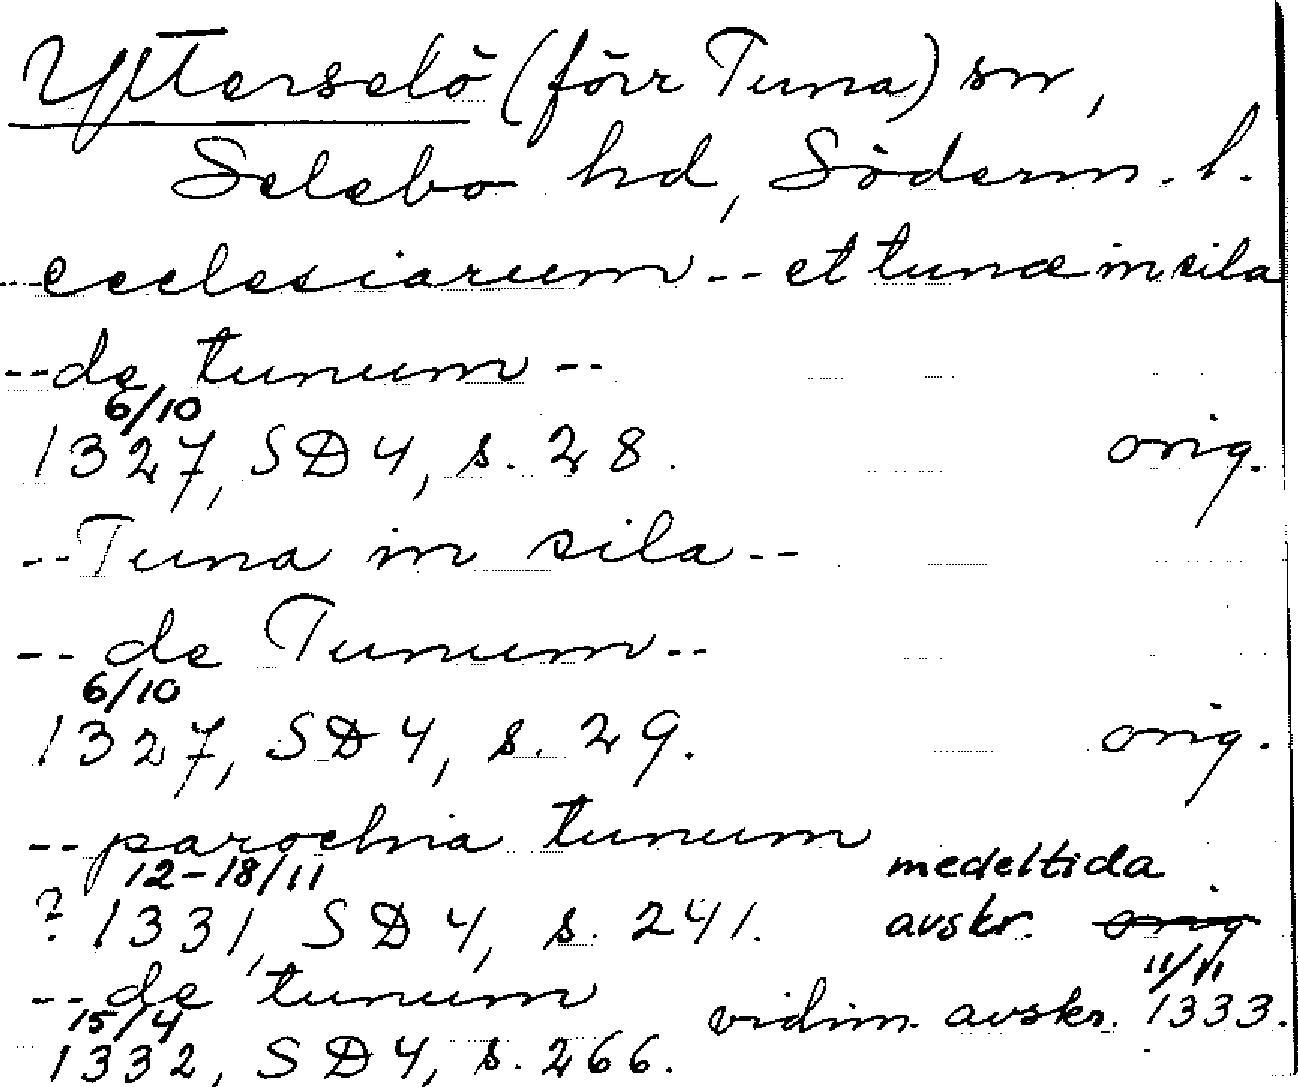 Ytterselö (förr Tuna) sn,
Selebo hd, Söderm. l.
--ecclesiarum -- et tunæ in sila
-- de tunum --
6/10
1327, SD 4, s. 28. orig.
-- Tuna in sila --
-- de Tunum --
6/10
1327, SD 4, s. 29. orig.
-- parochia tunum
12-18/11 medeltida
? 1331, SD 4, s. 241. avskr. orig
11/11
-- de tunum vidim. avskr. 1333.
15/4
1332, SD 4, s. 266.